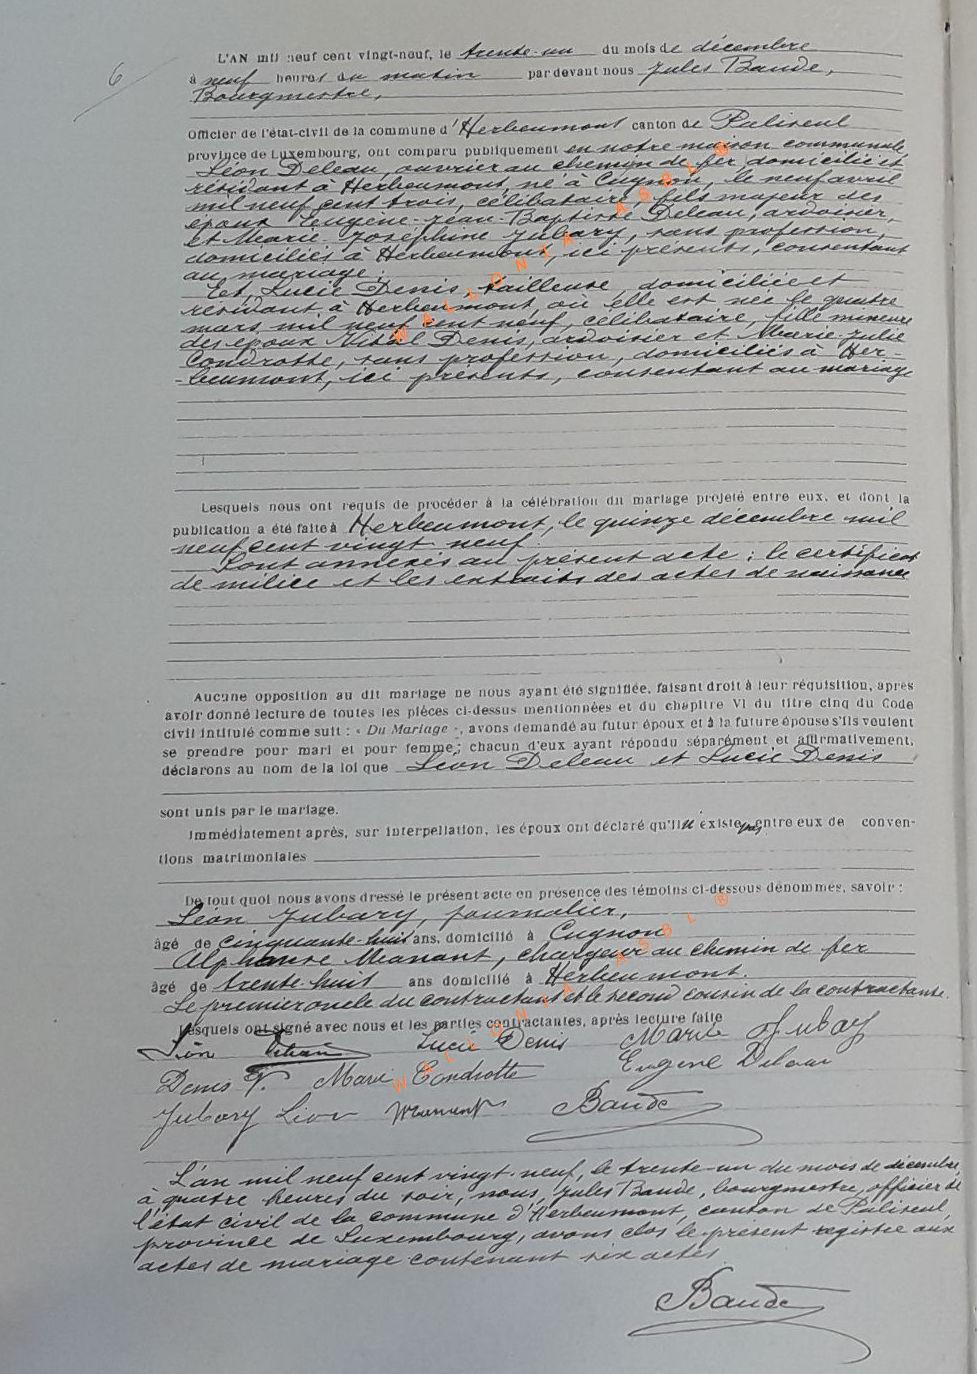 6
L'AN mil neuf cent vingt-neuf, le trente-un du mois de décembre
à neuf heures du matin par devant nous Jules Baude,
Bourgmestre,
Officier de l'état-civil de la commune d'Herbeumont canton de Paliseul
province de Luxembourg, ont comparu publiquement en notre maison communale
Léon Deleau, ouvrier au chemin de fer domicilié et
résidant à Herbeumont, né à Cugnon, le neuf avril
mil neuf cent trois, célibataire, fils majeur des
époux Eugène-Jean-Baptiste Deleau, ardoisier,
et Marie-Joséphine Jubary, sans profession,
domiciliés à Herbeumont, ici présents, consentant
au mariage;
Et, Lucie Denis, tailleuse, domiciliée et
résidant à Herbeumont, où elle est née le quatre
mars mil neuf cent neuf, célibataire, fille mineure
des époux Vital Denis, ardoisier et Marie-Julie
Condrotte, sans profession, domiciliés à Her-
-beumont, ici présents, consentant au mariage
Lesquels nous ont requis de procéder à la célébration du mariage projeté entre eux, et dont la
publication a été faite à Herbeumont, le quinze décembre mil
neuf cent vingt neuf.
Sont annexés au présent acte: le certificat
de milice et les extraits des actes de naissance
Aucune opposition au dit mariage ne nous ayant été signifiée, faisant droit à leur réquisition, après
avoir donné lecture de toutes les pièces ci-dessus mentionnées et du chapitre VI du titre cinq du Code
civil intitulé comme suit : « Du Mariage », avons demandé au futur époux et à la future épouse s'ils veulent
se prendre pour mari et pour femme; chacun d'eux ayant répondu séparément et affirmativement,
déclarons au nom de la loi que Léon Deleau et Lucie Denis
sont unis par le mariage.
Immédiatement après, sur interpellation, les époux ont déclaré qu'il n'existe pas entre eux de conven-
tions matrimoniales
De tout quoi nous avons dressé le présent acte en présence des témoins ci-dessous dénommés, savoir :
Léon Jubary, journalier,
âgé de cinquante-huit ans, domicilié à Cugnon
Alphonse Manant, chargeur au chemin de fer
âgé de trente-huit ans domicilié à Herbeumont.
Le premier oncle du contractant et le second cousin de la contractante.
Lesquels ont signé avec nous et les parties contractantes, après lecture faite
Léon Lucie Denis Marie Jubary
Denis V. Marie Condrotte Eugène Deleau
Jubary Léon Manant Baude
L'an mil neuf cent vingt-neuf, le trente-un du mois de décembre,
à quatre heures du soir, nous, Jules Baude, bourgmestre, officier de
l'état civil de la commune d'Herbeumont, canton de Paliseul,
province de Luxembourg, avons clos le présent registre aux
actes de mariage contenant six actes
Baude
WALLONIA ASBL ®
WALLONIA ASBL ®